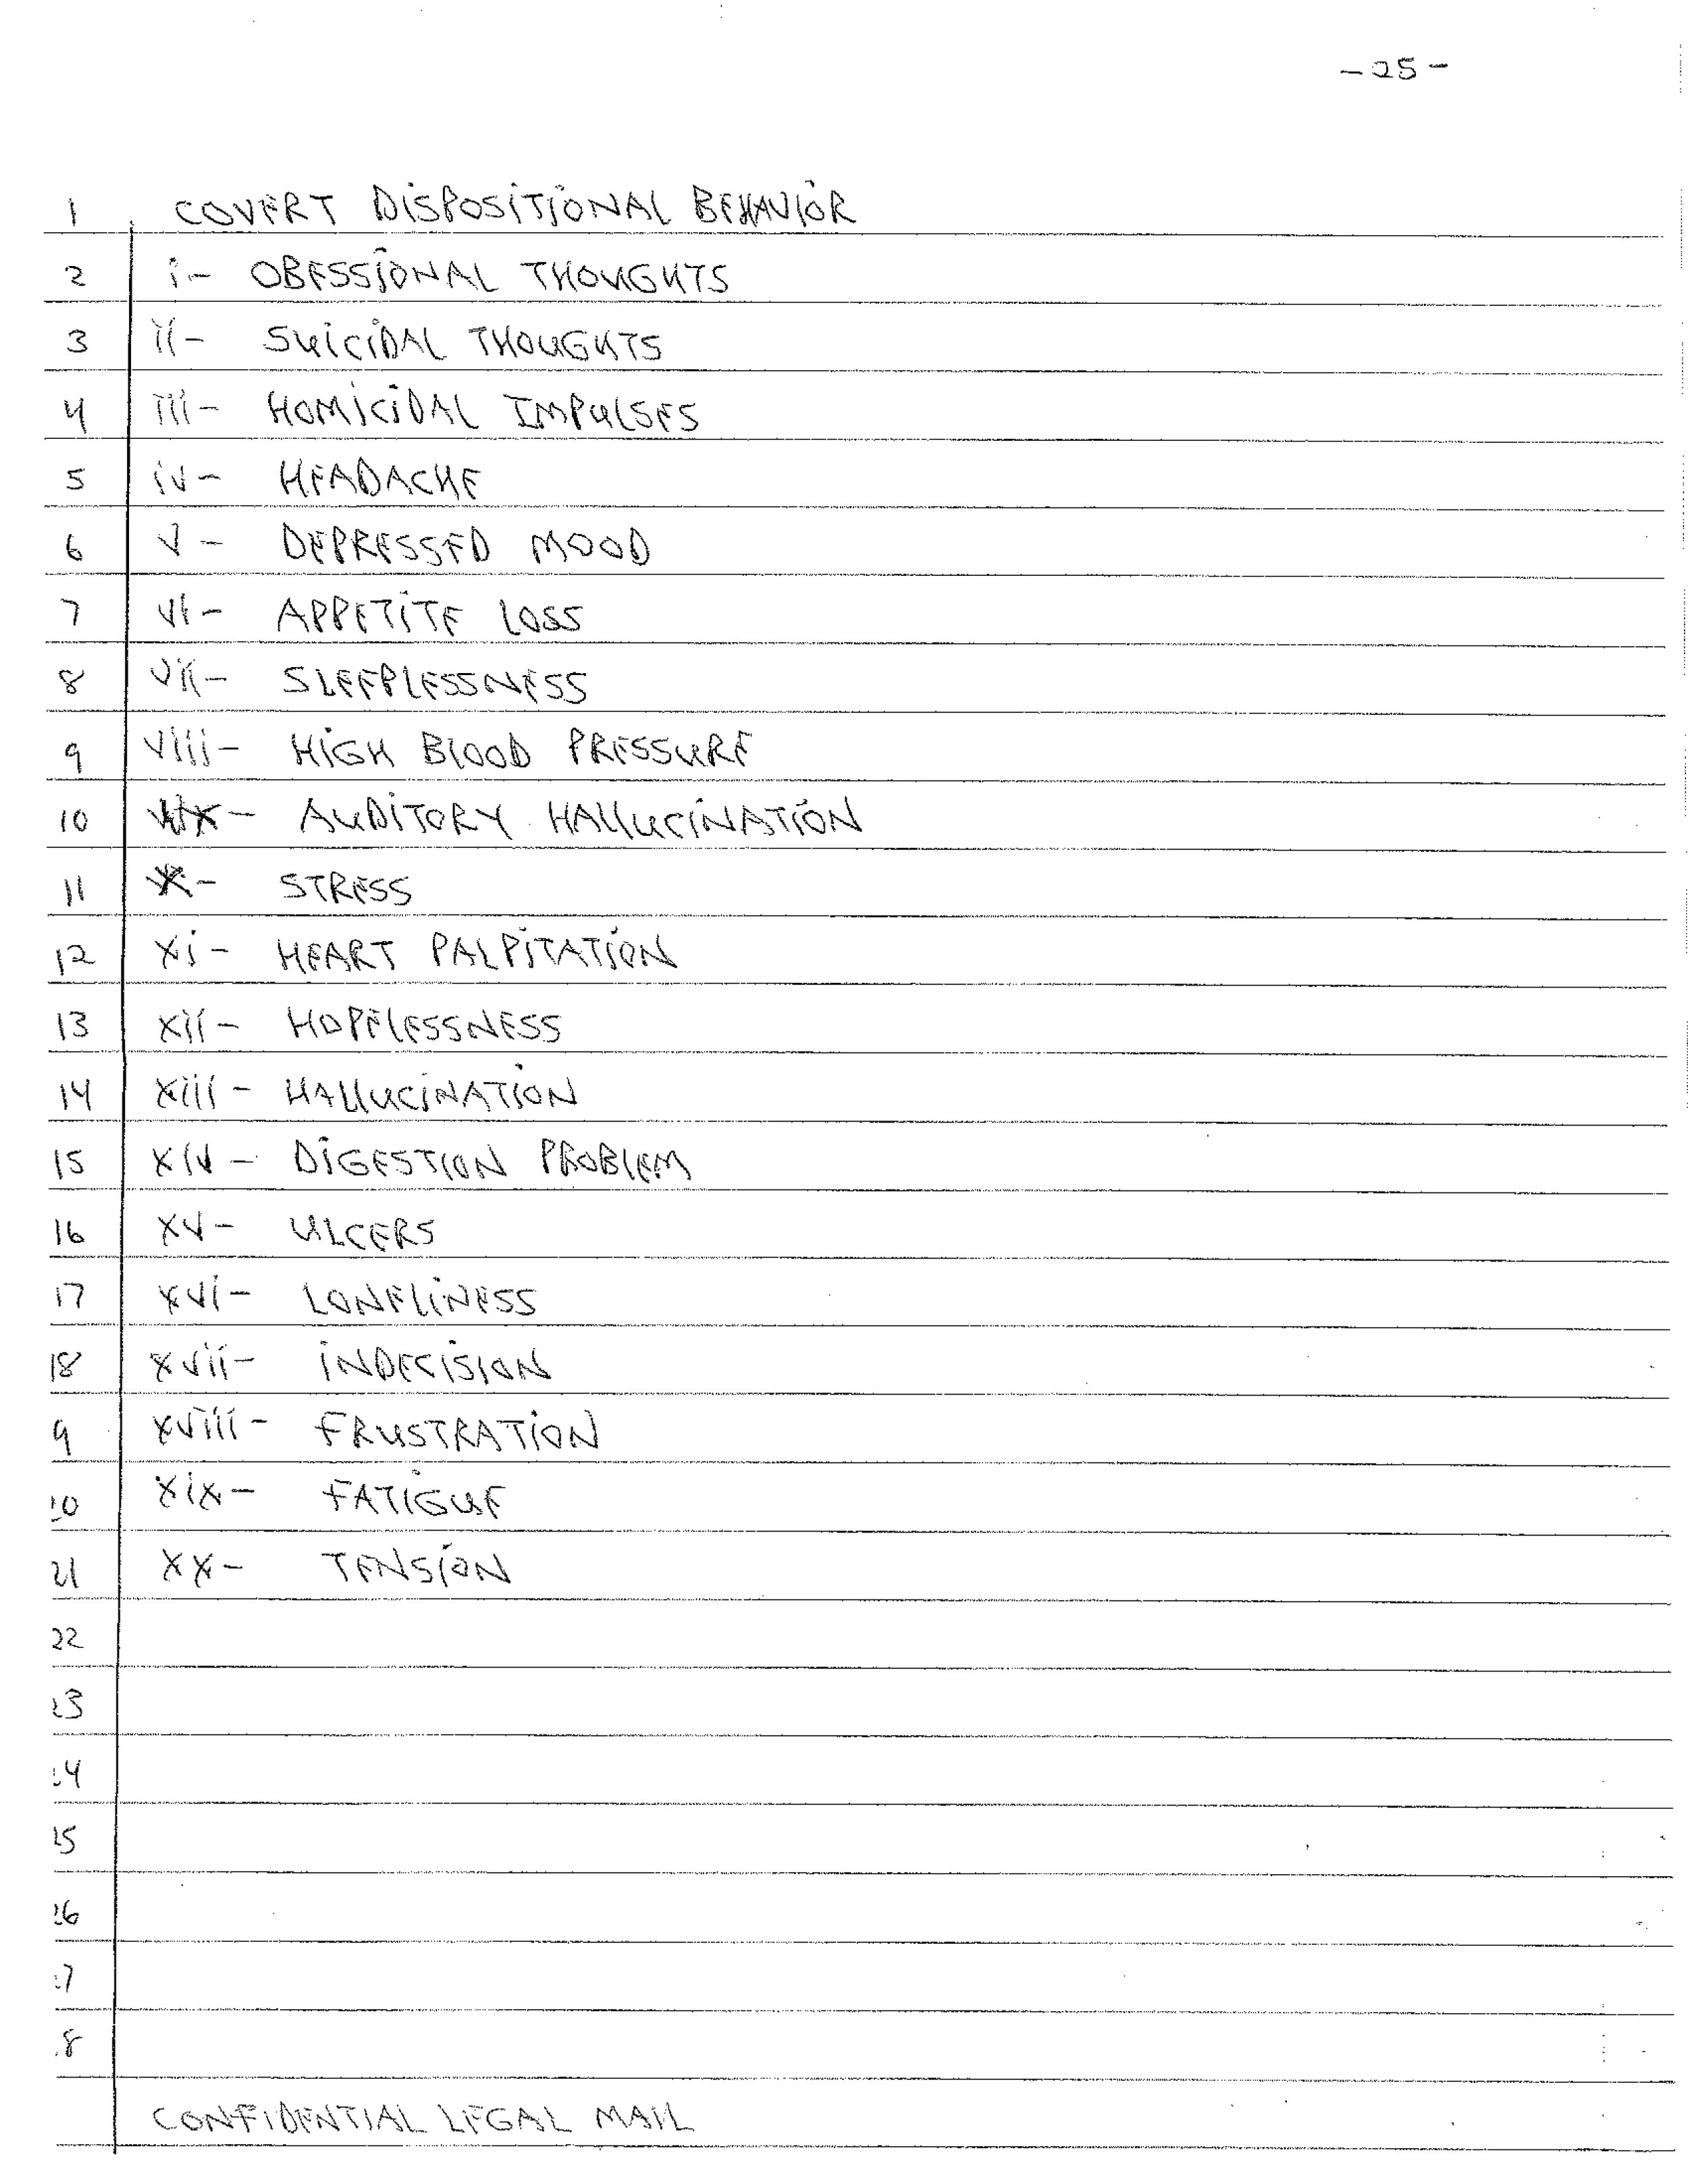 - 25 -
1 COVERT DISPOSITIONAL BEHAVIOR
2 i- OBESSIONAL THOUGHTS
3 ii- SUICIDAL THOUGHTS
4 iii- HOMICIDAL IMPULSES
5 iv- HEADACHE
6 v- DEPRESSED MOOD
7 vi- APPETITE LOSS
8 vii- SLEEPLESSNESS
9 viii- HIGH BLOOD PRESSURE
10 ix- AUDITORY HALLUCINATION
11 x- STRESS
12 xi- HEART PALPITATION
13 xii- HOPELESSNESS
14 xiii- HALLUCINATION
15 xiv- DIGESTION PROBLEM
16 xv- ULCERS
17 xvi- LONELINESS
18 xvii- INDECISION
9 xviii- FRUSTRATION
20 xix- FATIGUE
21 xx- TENSION
22
23
24
25
26
27
8
CONFIDENTIAL LEGAL MAIL